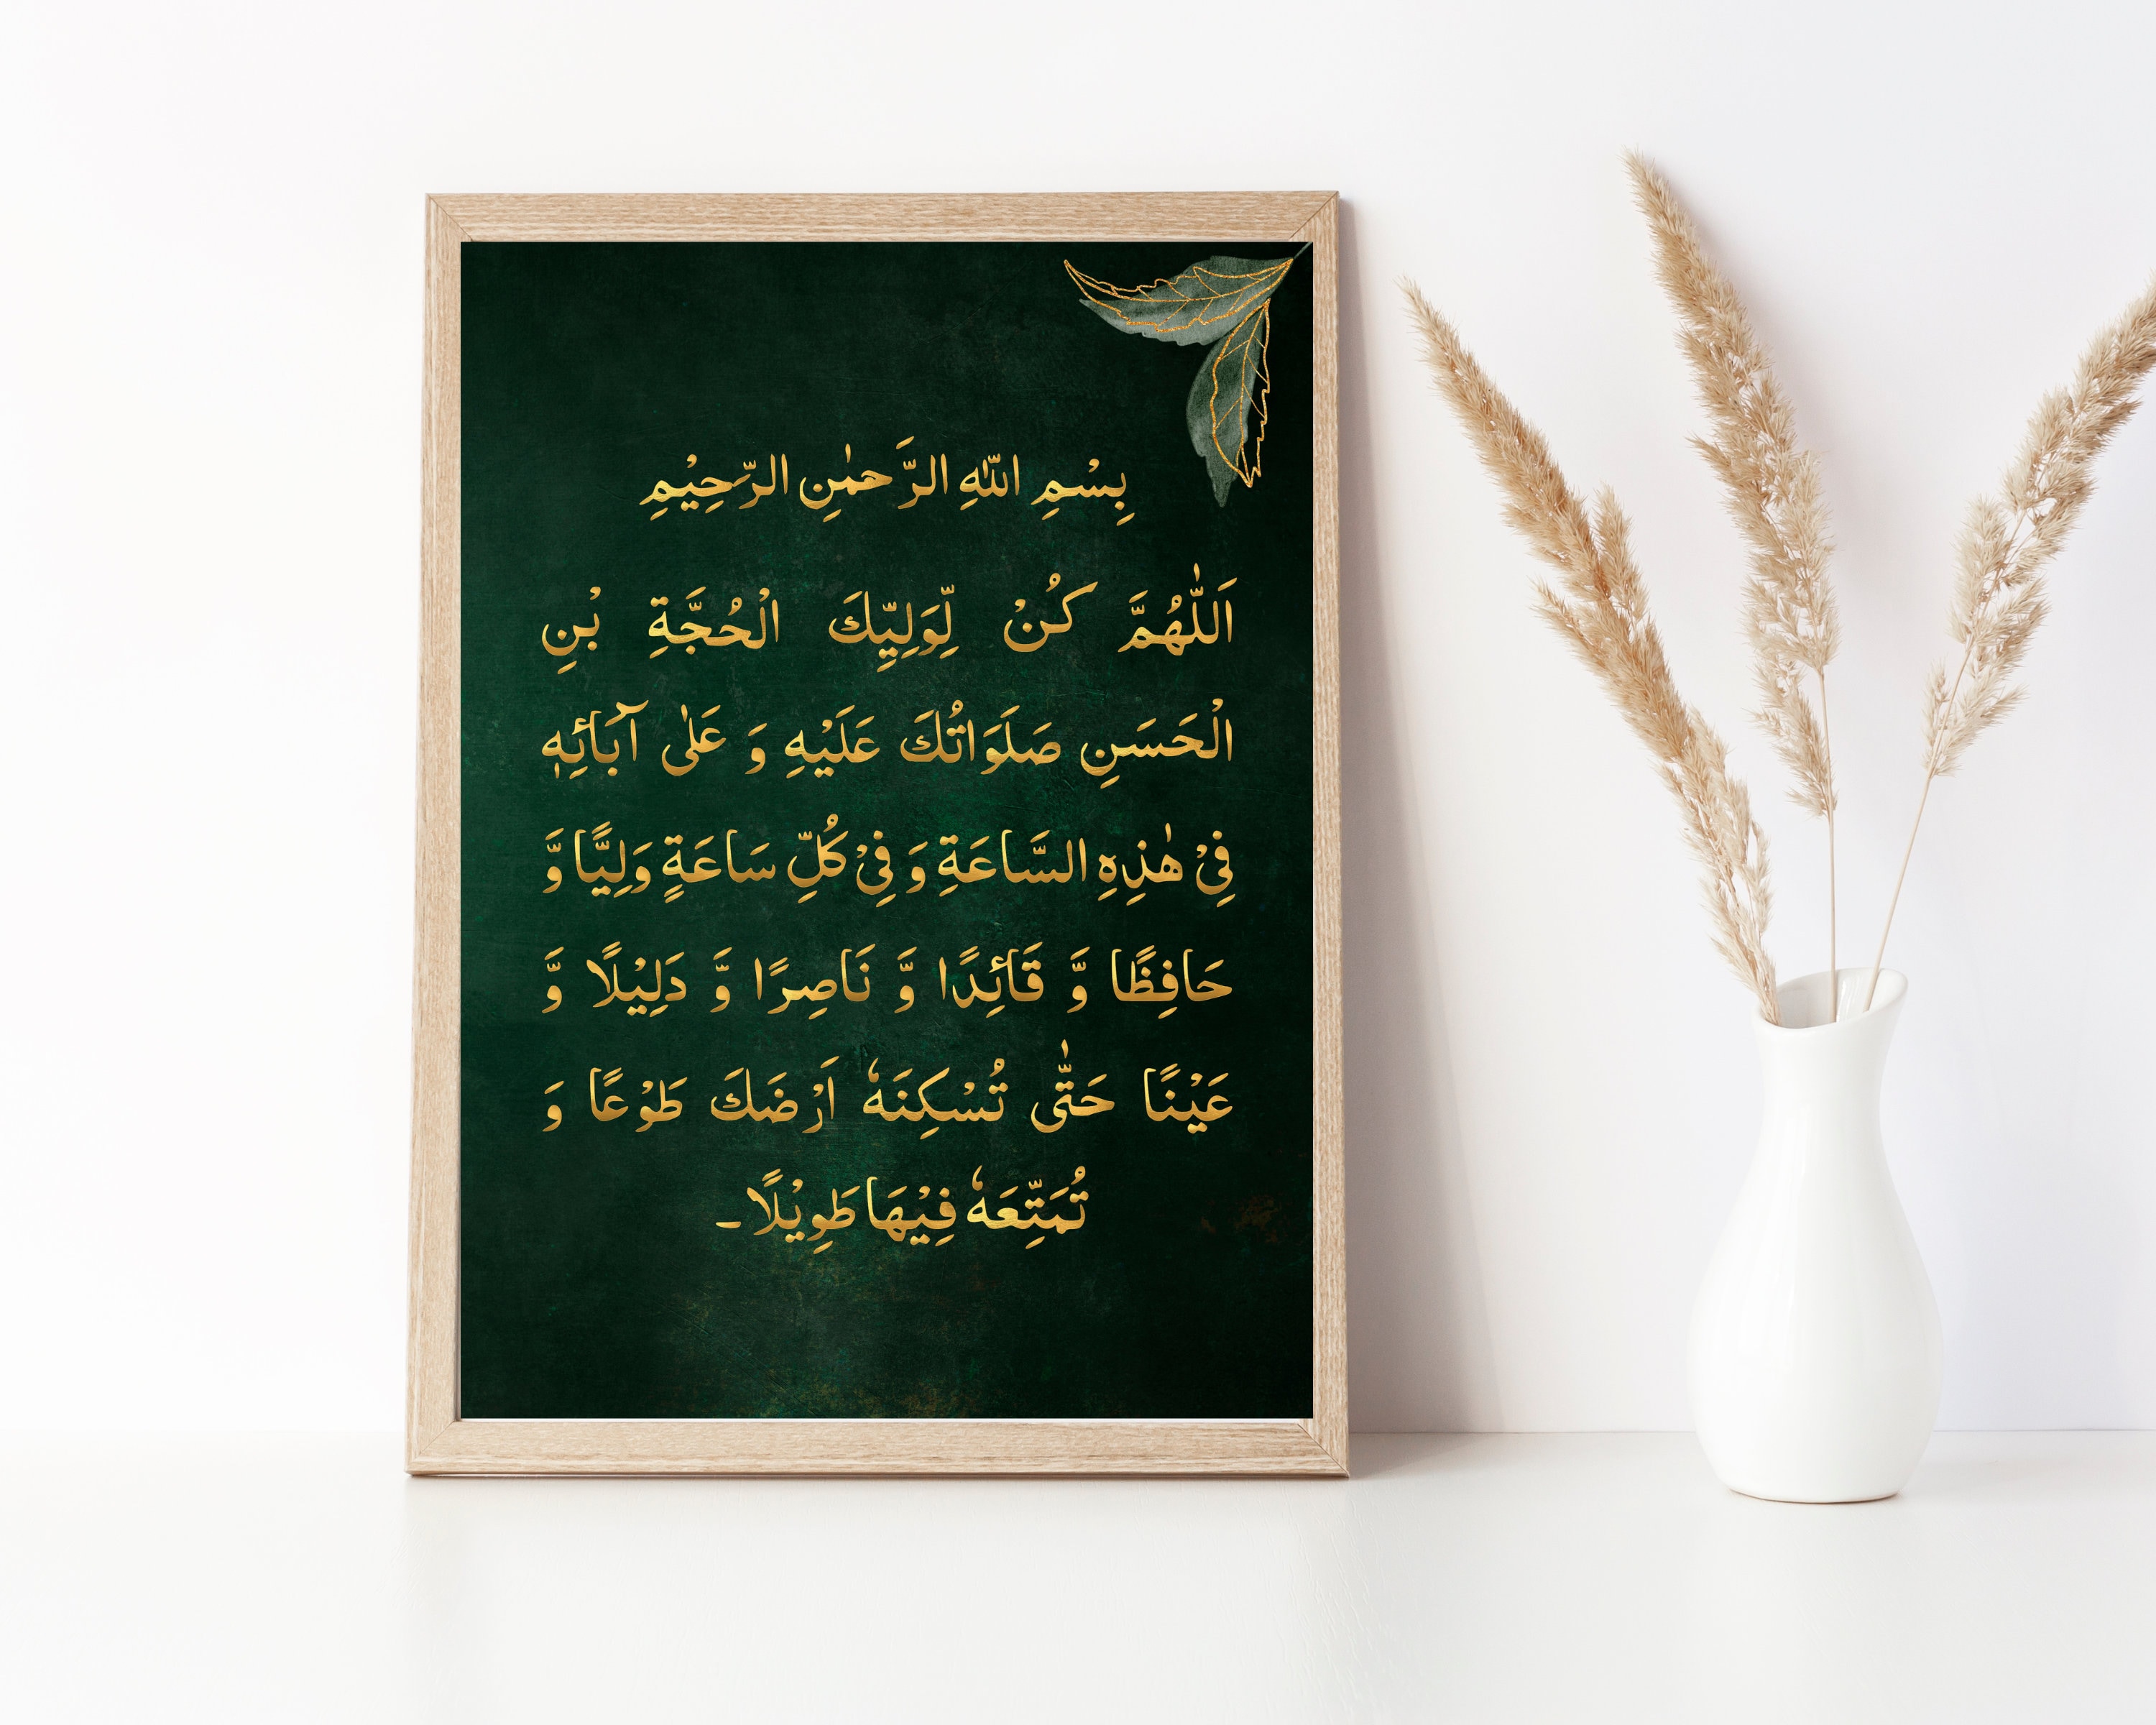 بِسْمِ اللّٰهِ الرَّحمٰنِ الرَّحِيْمِ
اَللّٰهُمَّ كُنْ لِّوَلِيِّكَ الْحُجَّةِ بْنِ
الْحَسَنِ صَلَوَاتُكَ عَلَيْهِ وَ عَلٰى آبَائِهٖ
فِيْ هٰذِهِ السَّاعَةِ وَ فِيْ كُلِّ سَاعَةٍ وَلِيًّا وَّ
حَافِظًا وَّ قَائِدًا وَّ نَاصِرًا وَّ دَلِيْلًا وَّ
عَيْنًا حَتّٰى تُسْكِنَهٗ اَرْضَكَ طَوْعًا وَ
تُمَتِّعَهٗ فِيْهَا طَوِيْلًا۔